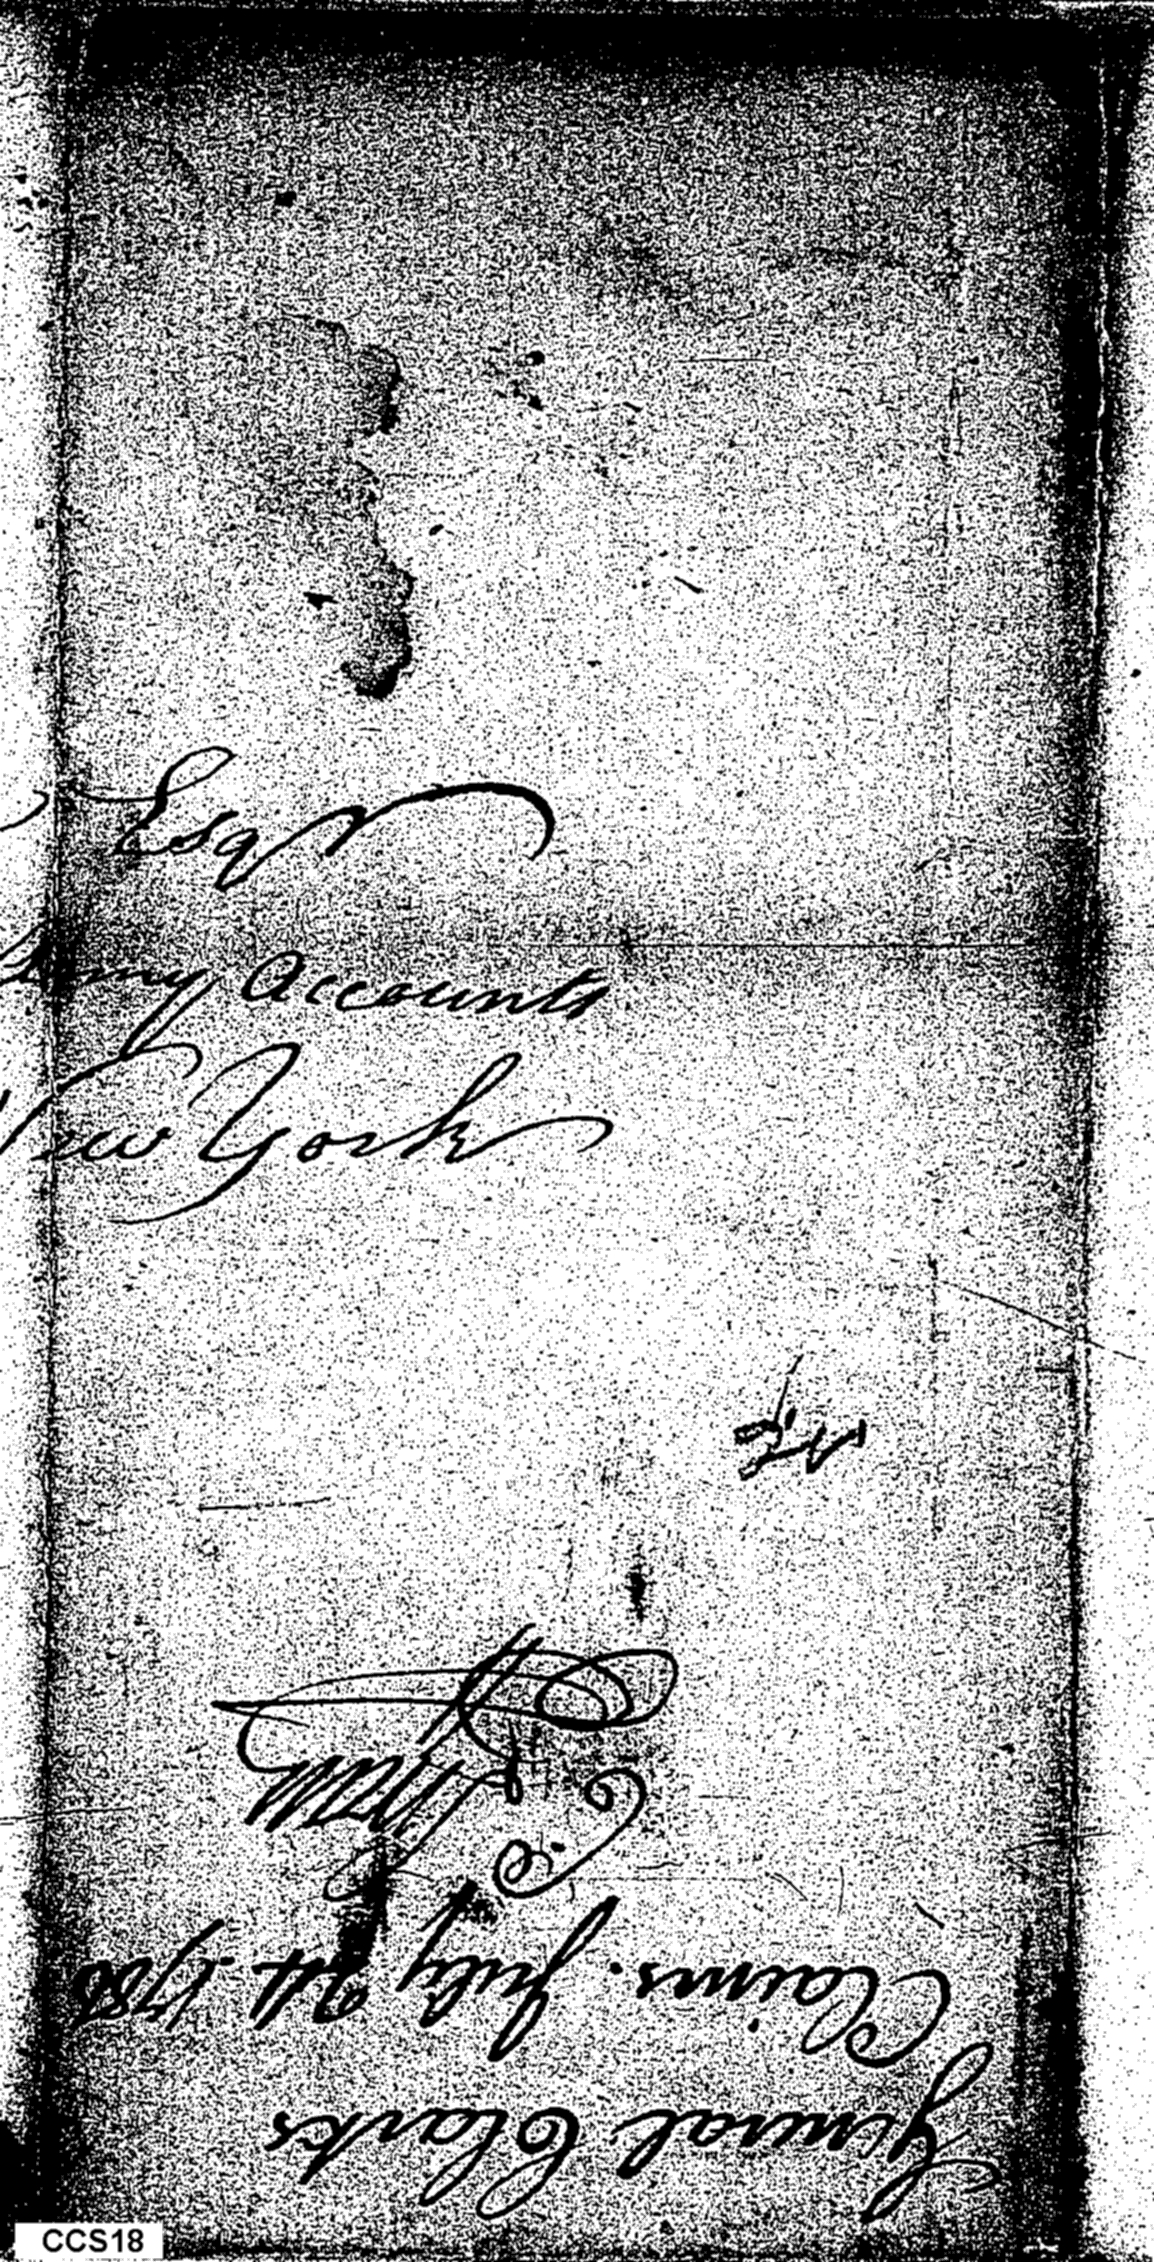 Esqr
Army Accounts
New York
General Clarks
Claims. July 24. 1786
CCS18